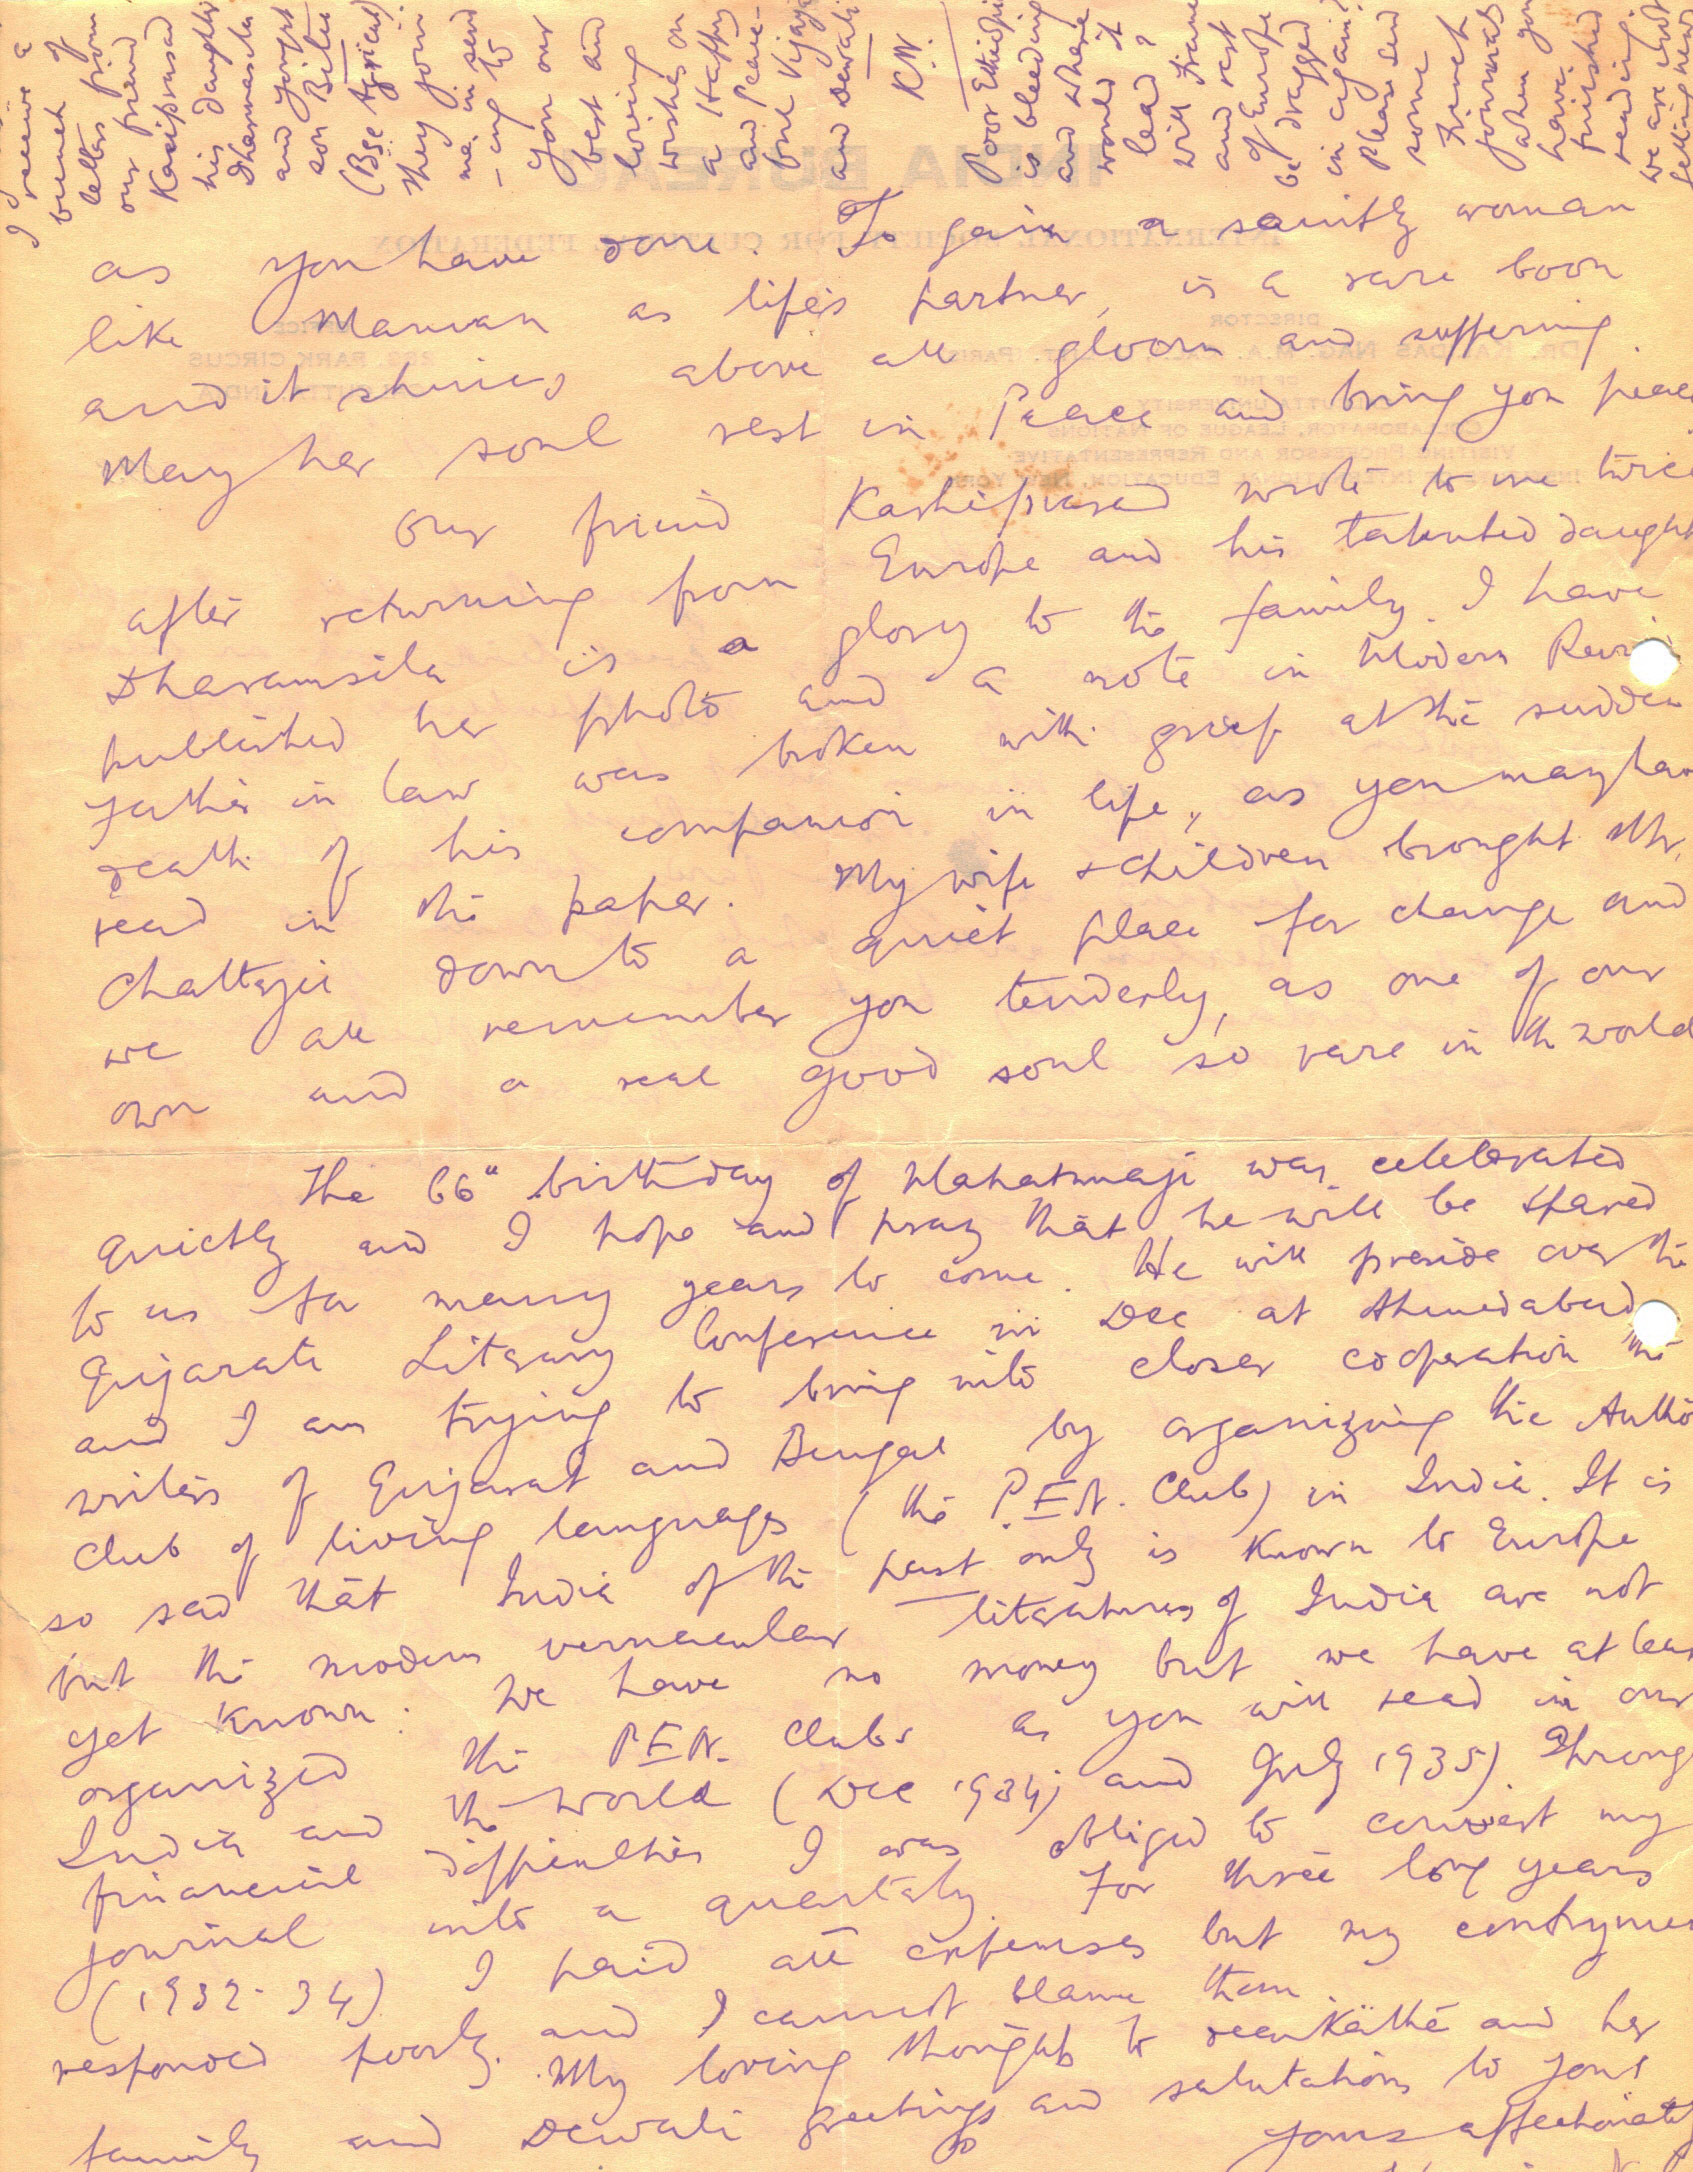 I
receive a
bunch of
letters from
our friend
Kasiprasad
his daughter
Dharmasila
and youngst
son Bitu
(BSc Agricul)
they join
me in send
-ing to
you our
best and
loving
wishes on
a Happy
and Peace-
ful Vijaya
and Dewali
K.N.
Poor Ethiopia
is bleeding
and where
would it
lead?
will France
and rest
of Europe
be dragged
in again?
Please send
some
French
journals
when you
have
finished
reading.
we are not
getting new
as you have done. To gain a saintly woman
like Maman as life's partner, is a rare boon
and it shines above all gloom and suffering.
May her soul rest in Peace and bring you peace
Our friend Kashiprasad wrote to me twice
after returning from Europe and his talented daught
Dharamsila is a glory to the family. I have
published her photo and a note in Modern Revi
Father in law was broken with grief at the sudden
death of his companion in life, as you may hav
read in the paper. My wife & children brought Mr.
Chatterji down to a quiet place for change and
we all remember you tenderly, as one of our
own and a real good soul so rare in th world
The 66" birthday of Mahatmaji was celebrated
quietly and I hope and pray that he will be spared
to us for many years to come. He will preside over the
Gujarati Literary Conference in Dec at Ahmedabad
and I am trying to bring into closer cooperation the
writers of Gujarat and Bengal by organizing the Autho
Club of living languages (the P.E.N. Club) in India. It is
so sad that India of the past only is known to Europe
but the modern vernacular literatures of India are not
yet known. We have no money but we have at leas
organized the P.E.N. Clubs as you will read in our
India and the World (Dec 1934) and July 1935). Throug
financial difficulties I was obliged to convert my
journal into a quarterly. For three long years
(1932-34) I paid all expenses but my contrymen
responded poorly and I cannot blame them.
My loving thoughts to Käthe and her
family and Dewali greetings and salutations to you
Yours affectionately
INDIA BUREAU
INTERNATIONAL SOCIETY FOR CULTURAL FEDERATION
DIRECTOR
DR. KALIDAS NAG, M.A. (CAL.), D.LITT. (PARIS)
OF THE
CALCUTTA UNIVERSITY
COLLABORATOR, LEAGUE OF NATIONS
VISITING PROFESSOR AND REPRESENTATIVE
INSTITUTE OF INTERNATIONAL EDUCATION, NEW YORK
OFFICE
PARK CIRCUS
CALCUTTA, INDIA